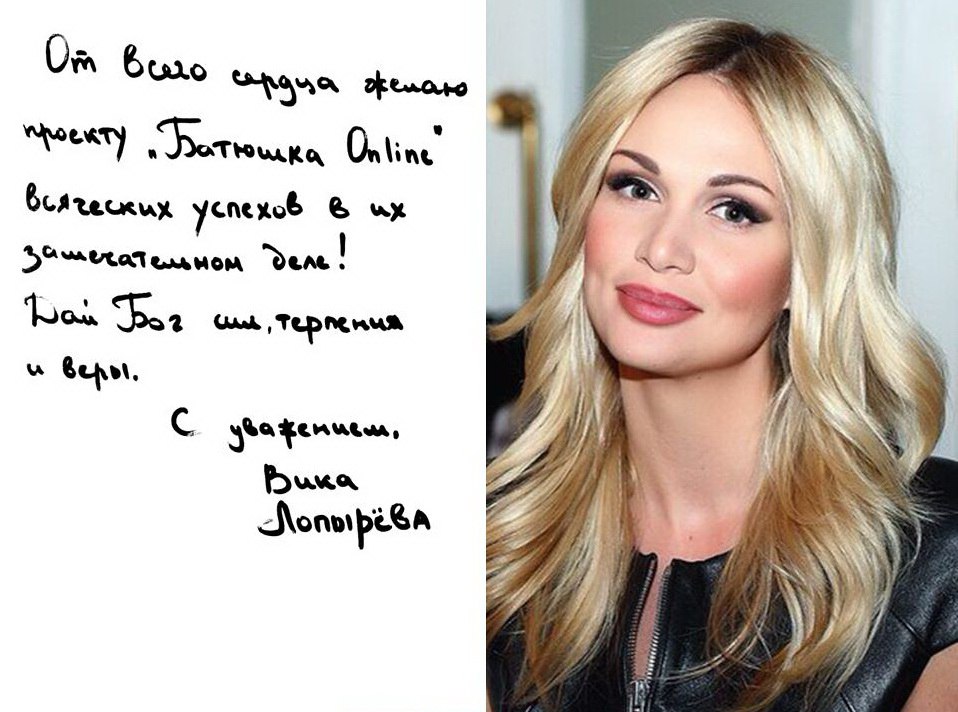 От всего сердца желаю
проекту „Батюшка Online"
всяческих успехов в их
замечательном деле!
Дай Бог сил, терпения
и веры.
С уважением,
Вика
Лопырёва